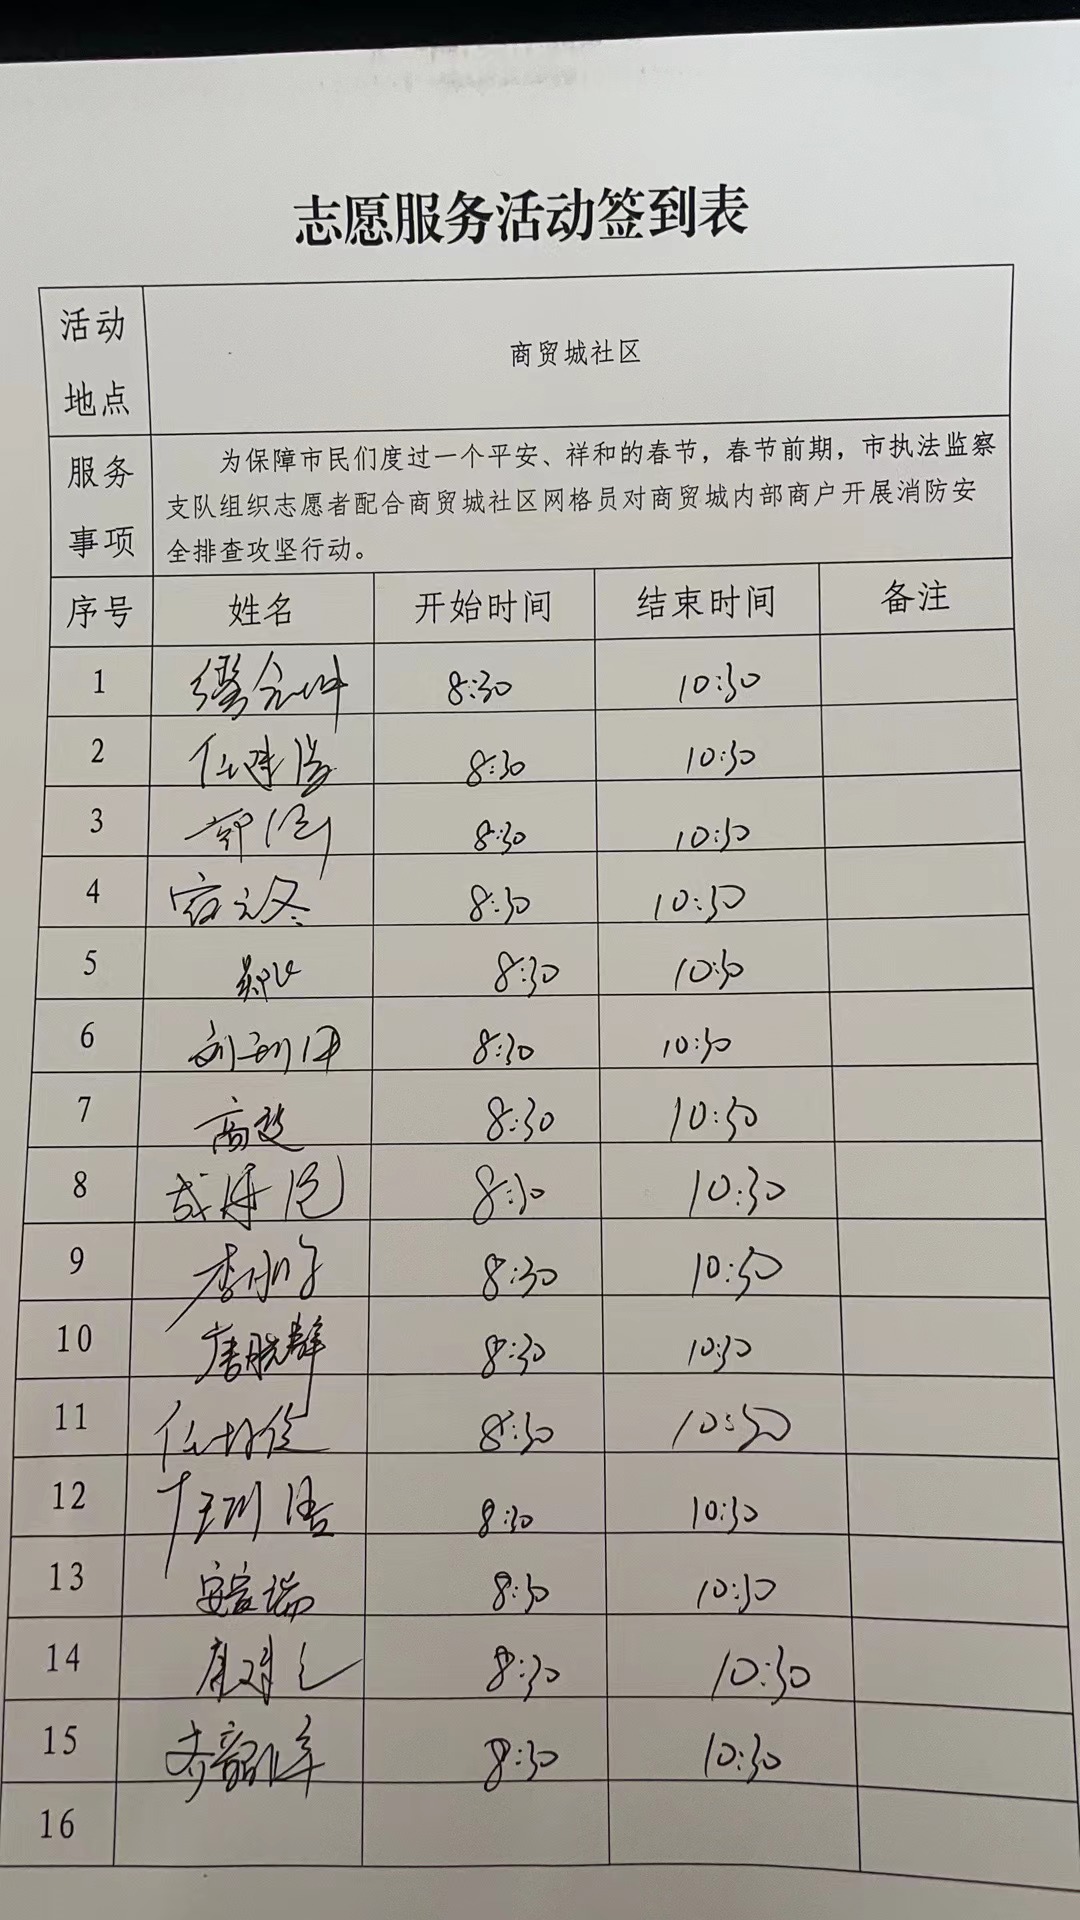 志愿服务活动签到表
活动地点 商贸城社区
服务事项 为保障市民们度过一个平安、祥和的春节，春节前期，市执法监察
支队组织志愿者配合商贸城社区网格员对商贸城内部商户开展消防安
全排查攻坚行动。
序号 姓名 开始时间 结束时间 备注
1 8:30 10:30
2 8:30 10:30
3 8:30 10:30
4 8:30 10:30
5 8:30 10:30
6 8:30 10:30
7 高超 8:30 10:30
8 8:30 10:30
9 8:30 10:30
10 唐晓静 8:30 10:30
11 8:30 10:30
12 8:30 10:30
13 安家瑞 8:30 10:30
14 8:30 10:30
15 8:30 10:30
16